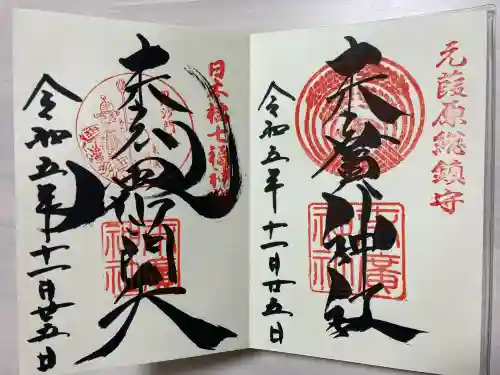 元葭原総鎮守
末廣神社
末廣
神社
令和五年十一月廿五日
日本橋七福神
毘沙門天
末廣
神社
令和五年十一月廿五日